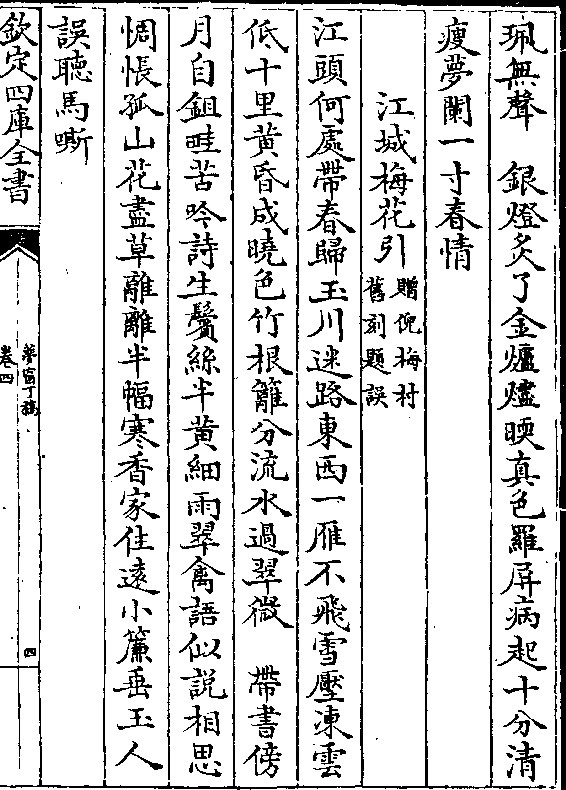 珮無聲　銀燈炙了金爐燼暎真色羅屏病起十分清
瘦夢闌一寸春情
江城梅花引贈倪梅村
舊刻題誤
江頭何處帶春歸玉川迷路東西一雁不飛雪壓凍雲
低十里黄昏成曉色竹根籬分流水過翠微　帶書傍
月自鉏畦苦吟詩生鬢絲半黄細雨翠禽語似説相思
惆悵孤山花盡草離離半幅寒香家住遠小簾垂玉人
誤聽馬嘶
欽定四庫全書
夢窗丁稿
卷四
四